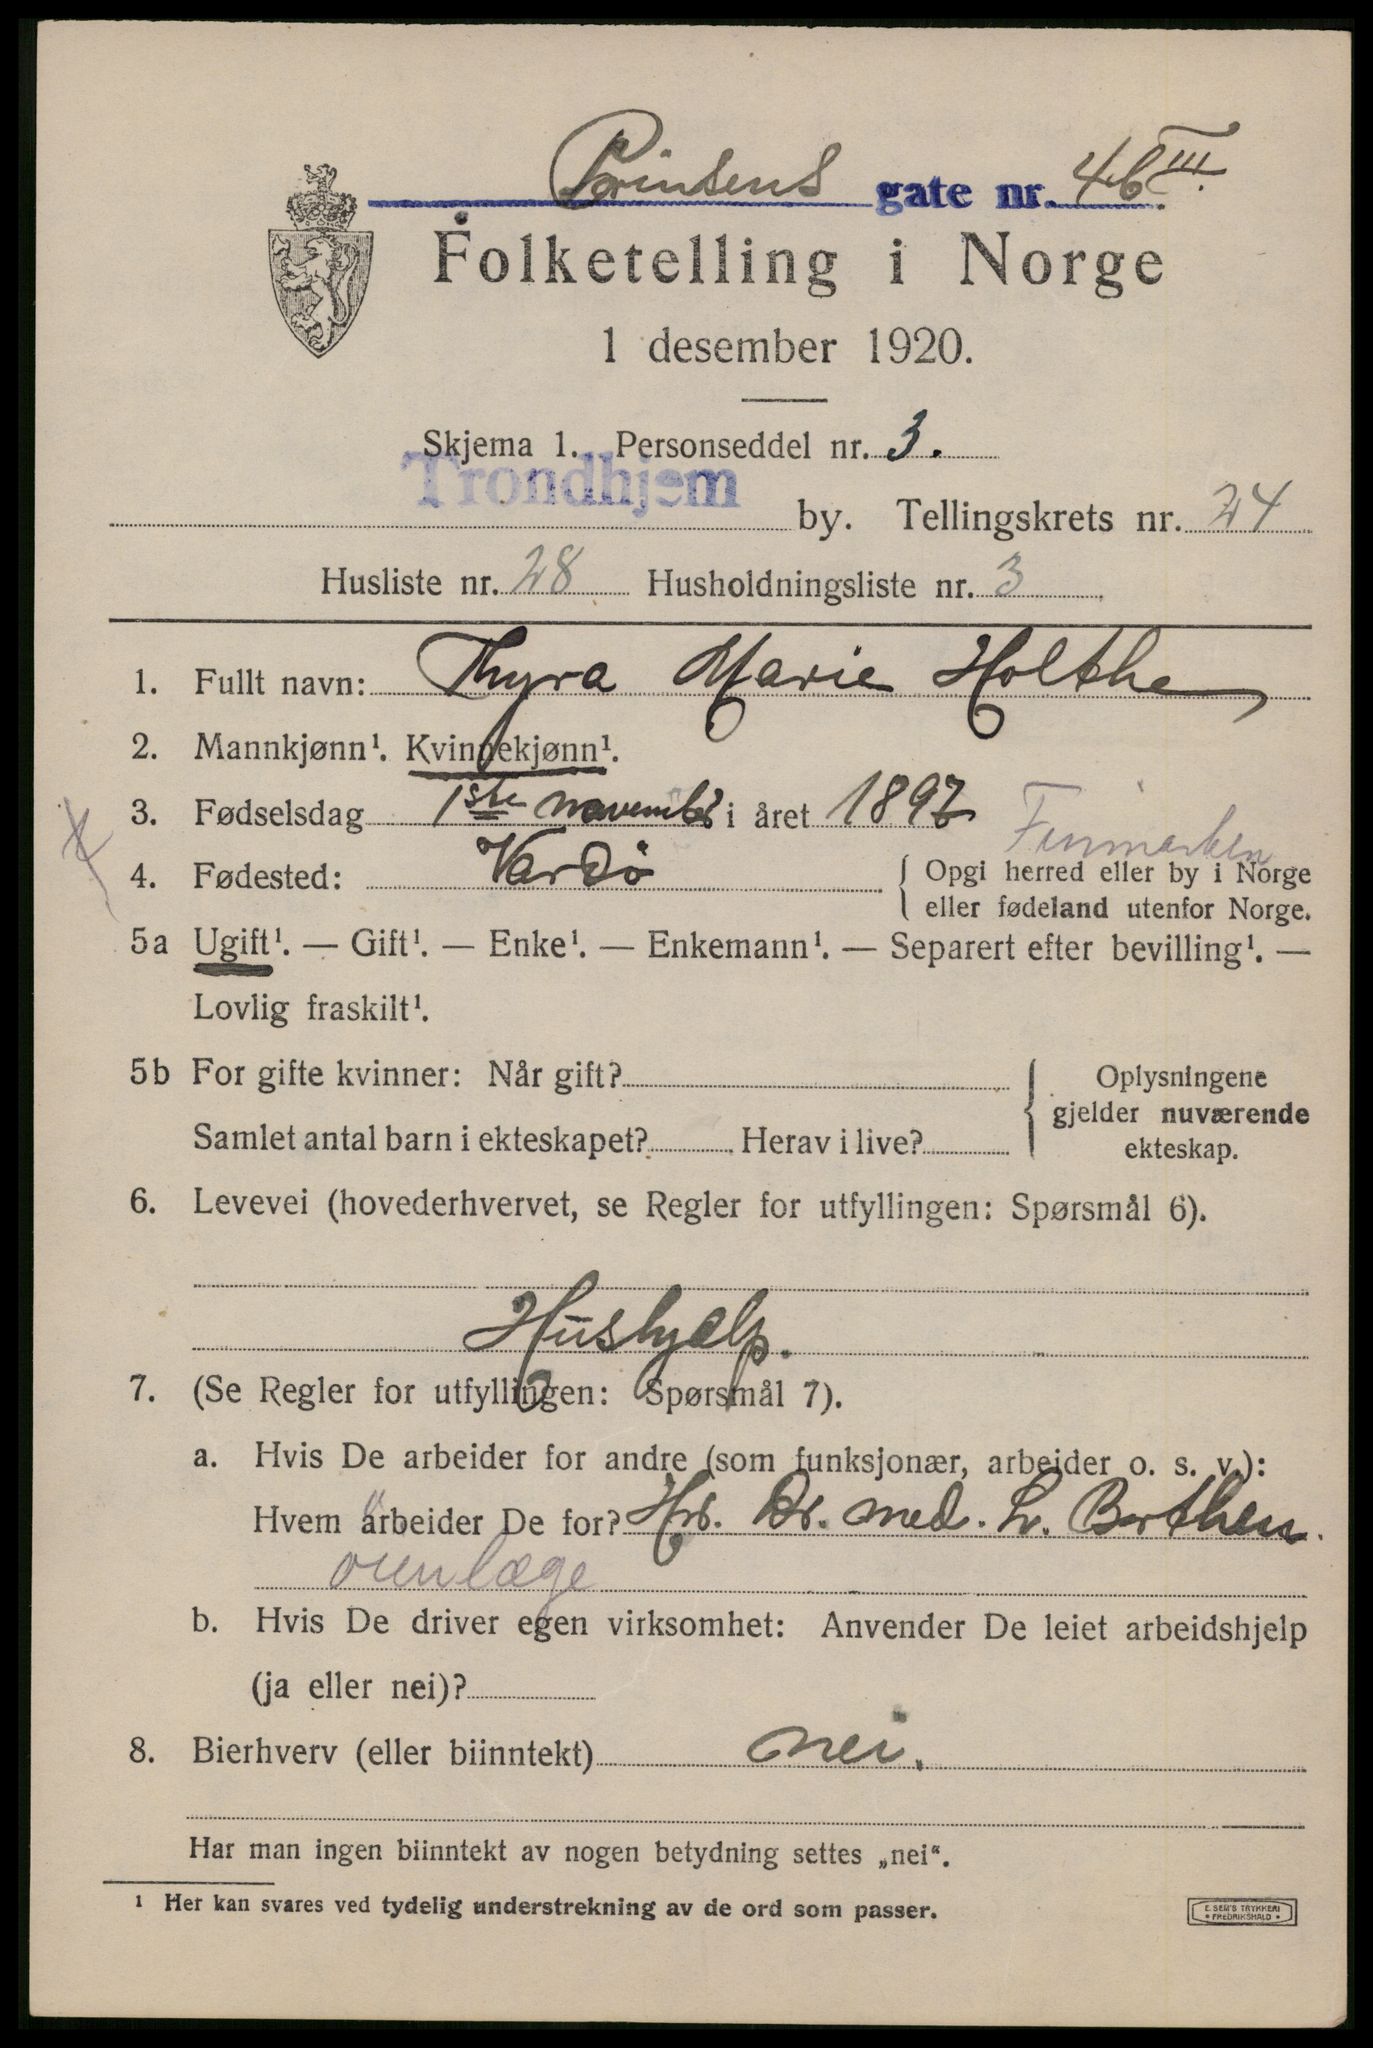 Prinsens gate nr. 4b III.
Folketelling i Norge
1 desember 1920.
Skjema 1. Personseddel nr. 3.
Trondhjem by. Tellingskrets nr. 24
Husliste nr. 28 Husholdningsliste nr. 3
1. Fullt navn: Thyra Marie Holthe
2. Mannkjønn¹. Kvinnekjønn¹.
3. Fødselsdag 1ste november i året 1897
Finmarken
4. Fødested: Vardö { Opgi herred eller by i Norge
eller fødeland utenfor Norge.
5a Ugift¹. — Gift¹. — Enke¹. — Enkemann¹. — Separert efter bevilling¹. —
Lovlig fraskilt¹.
5b For gifte kvinner: Når gift? { Oplysningene
gjelder nuværende
Samlet antal barn i ekteskapet? Herav i live? ekteskap.
6. Levevei (hovederhvervet, se Regler for utfyllingen: Spørsmål 6).
Hushjælp.
7. (Se Regler for utfyllingen: Spørsmål 7).
a. Hvis De arbeider for andre (som funksjonær, arbeider o. s. v.):
Hvem arbeider De for? Hr. Dr. med. L. Berthen.
øienlæge
b. Hvis De driver egen virksomhet: Anvender De leiet arbeidshjelp
(ja eller nei)?
8. Bierhverv (eller biinntekt) nei.
Har man ingen biinntekt av nogen betydning settes „nei“.
¹ Her kan svares ved tydelig understrekning av de ord som passer.
E. SEM'S TRYKKERI
• FREDRIKSHALD •